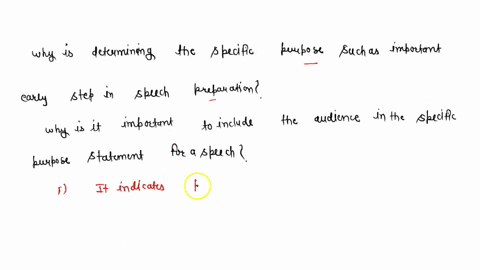 why is determining the specific purpose such as important
early step in speech preparation?
why is it important to include the audience in the specific
purpose statement for a speech?
1) It indicates